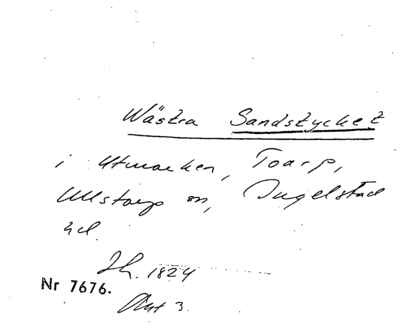 Wästra Sandstycket
i Utmarken, Toarp,
Ullstorp sn, Ingelstad
hd.
Sk. 1824
Nr 7676.
Akt 3.